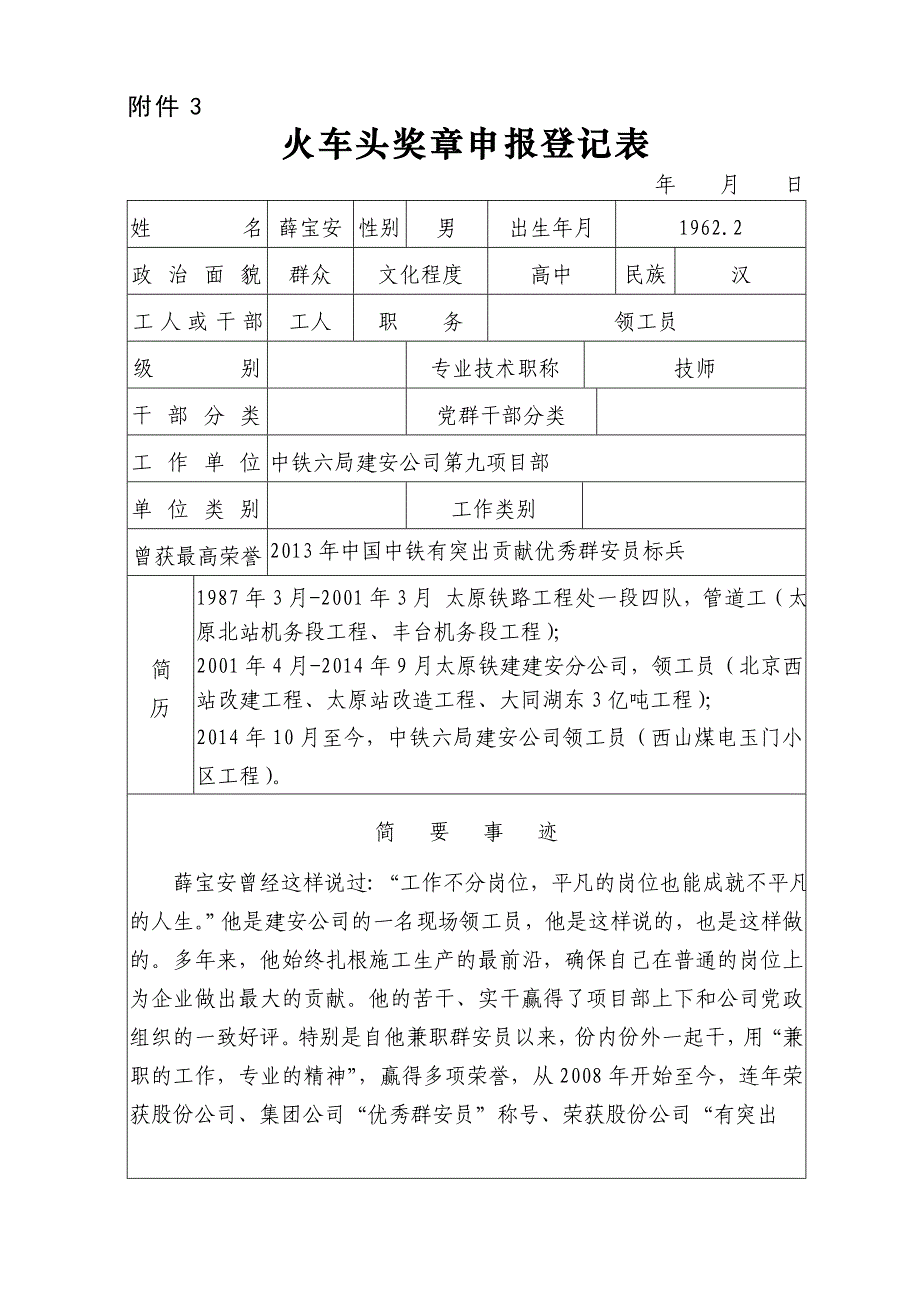 附件 3
火车头奖章申报登记表
年 月 日
姓 名 薛宝安 性别 男 出生年月 1962.2
政 治 面 貌 群众 文化程度 高中 民族 汉
工人或干部 工人 职 务 领工员
级 别 专业技术职称 技师
干 部 分 类 党群干部分类
工 作 单 位 中铁六局建安公司第九项目部
单 位 类 别 工作类别
曾获最高荣誉 2013年中国中铁有突出贡献优秀群安员标兵
简历
1987年3月-2001年3月 太原铁路工程处一段四队，管道工（太
原北站机务段工程、丰台机务段工程）；
2001年4月-2014年9月太原铁建建安分公司，领工员（北京西
站改建工程、太原站改造工程、大同湖东3亿吨工程）；
2014年10月至今，中铁六局建安公司领工员（西山煤电玉门小
区工程）。
简 要 事 迹
薛宝安曾经这样说过：“工作不分岗位，平凡的岗位也能成就不平凡
的人生。”他是建安公司的一名现场领工员，他是这样说的，也是这样做
的。多年来，他始终扎根施工生产的最前沿，确保自己在普通的岗位上
为企业做出最大的贡献。他的苦干、实干赢得了项目部上下和公司党政
组织的一致好评。特别是自他兼职群安员以来，份内份外一起干，用“兼
职的工作，专业的精神”，赢得多项荣誉，从2008年开始至今，连年荣
获股份公司、集团公司“优秀群安员”称号、荣获股份公司“有突出